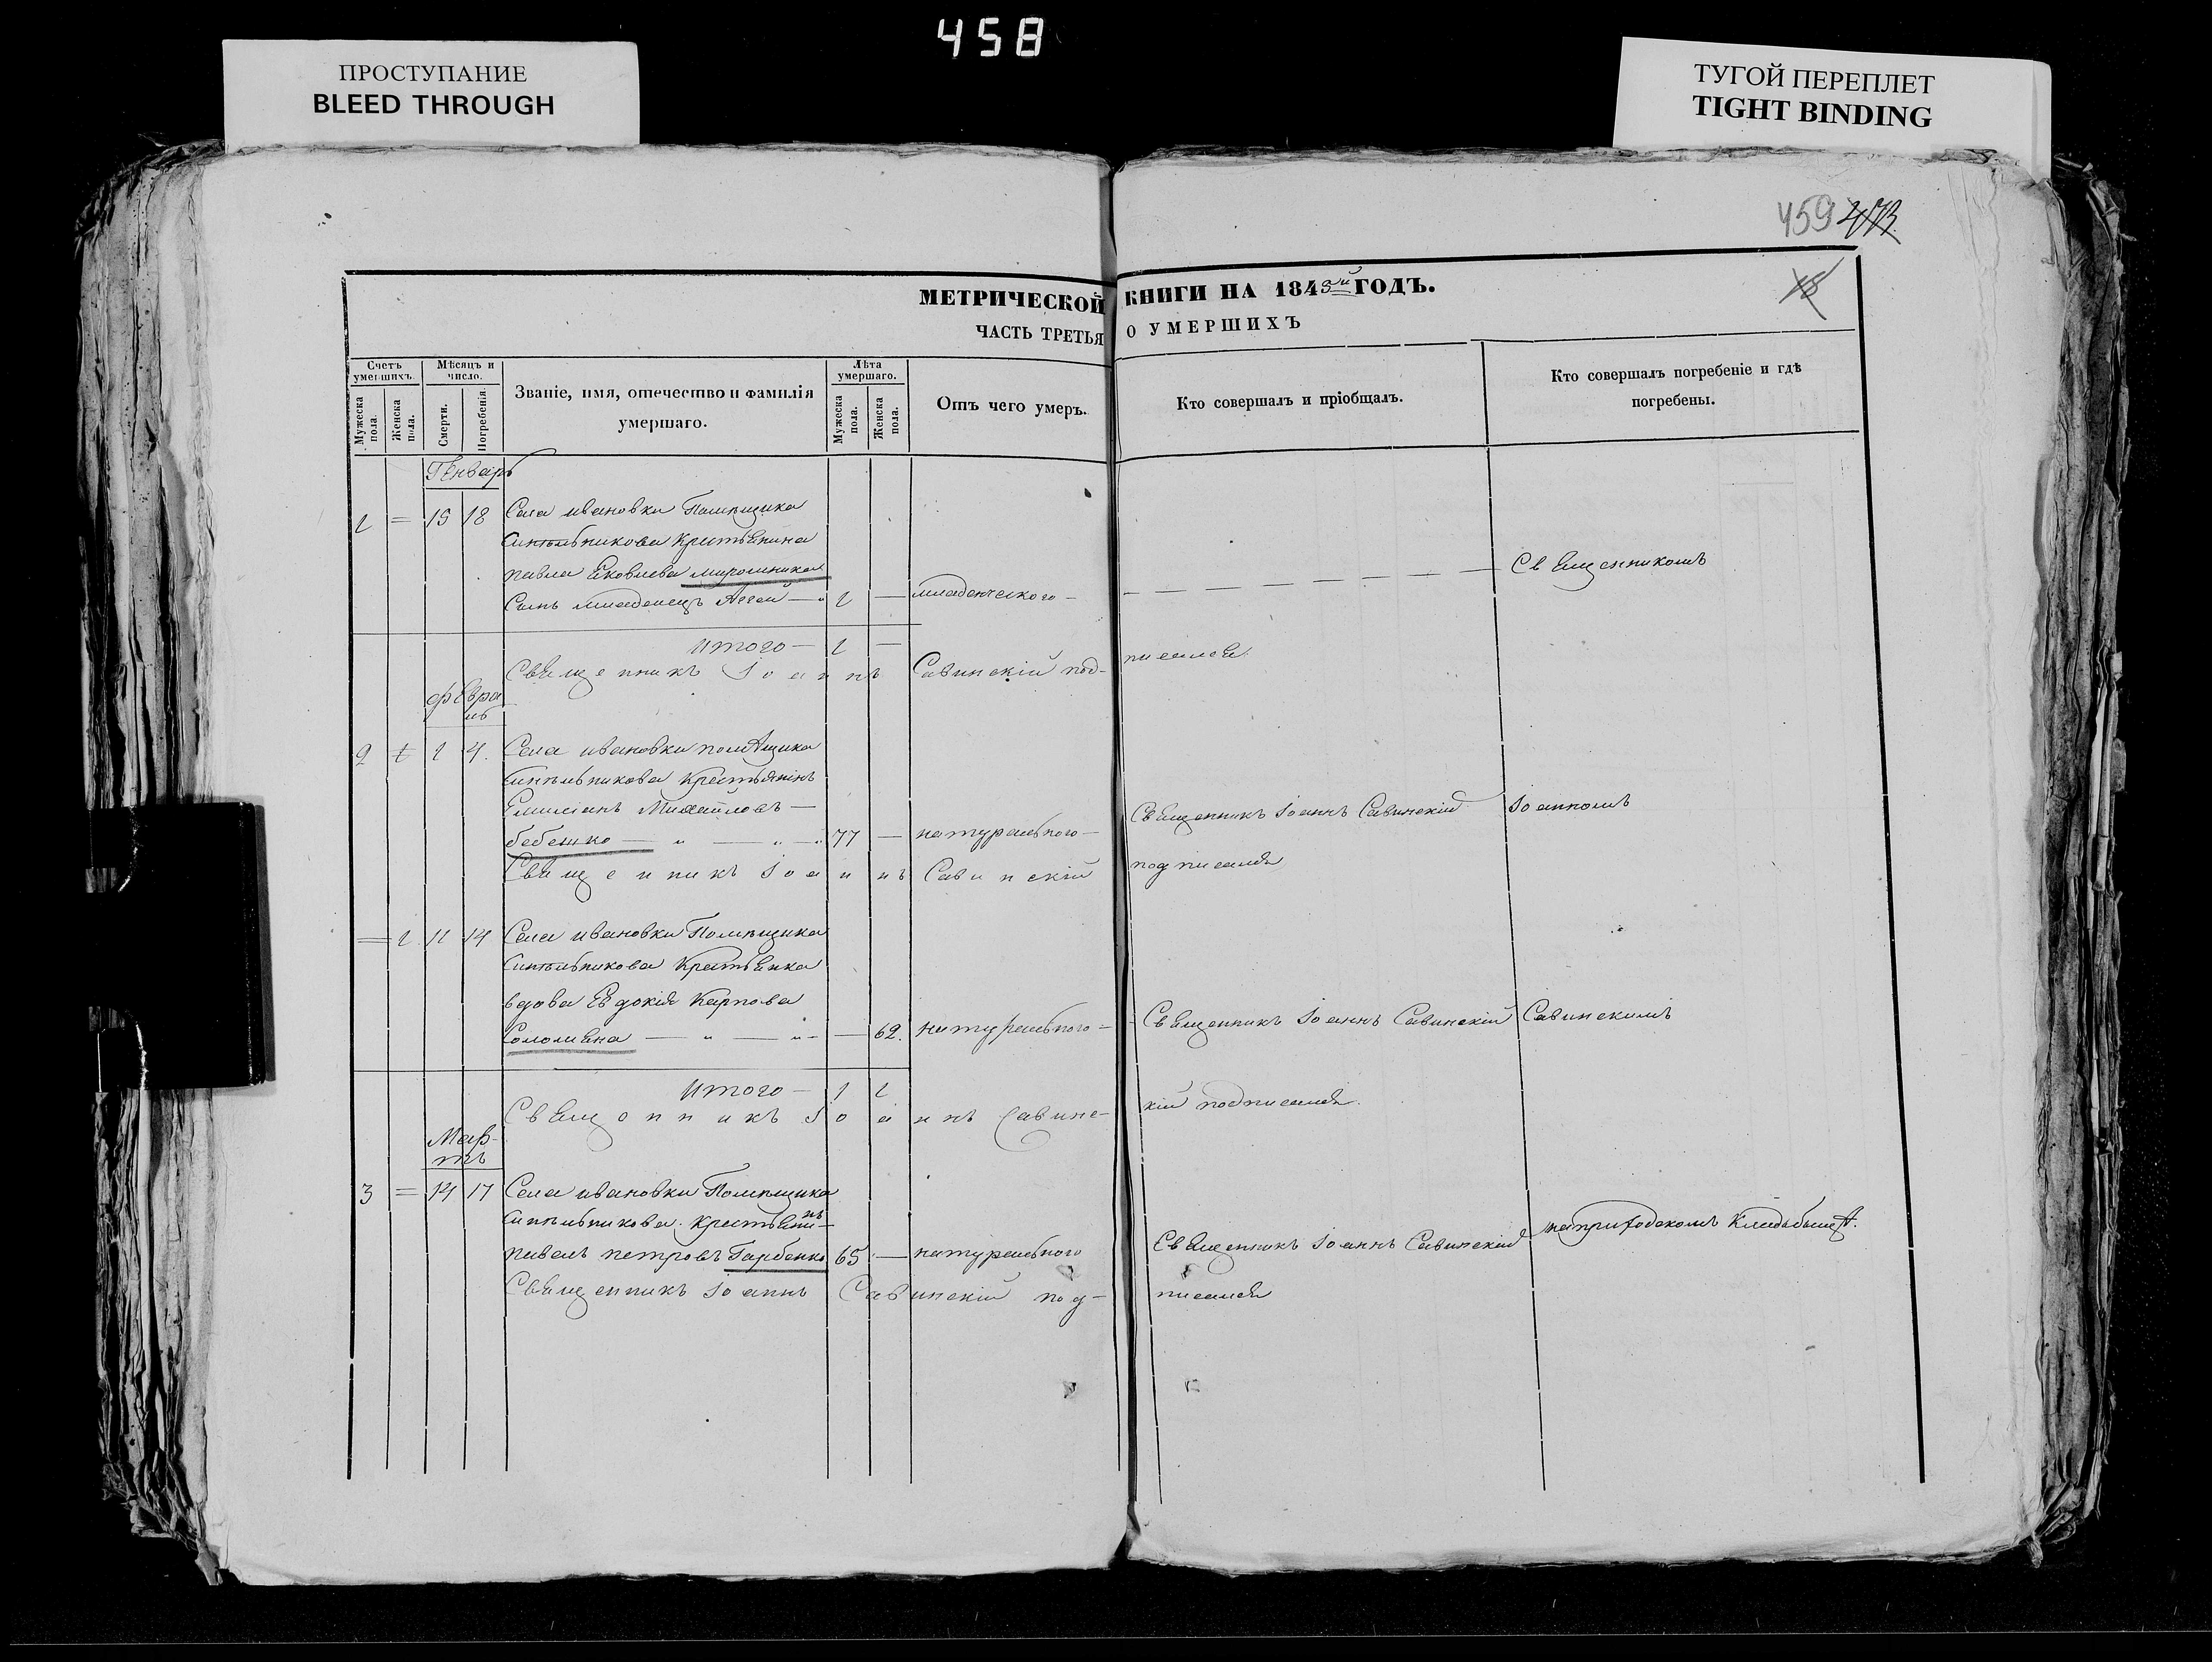 458
ПРОСТУПАНИЕ
BLEED THROUGH
ТУГОЙ ПЕРЕПЛЕТ
TIGHT BINDING
459 473
МЕТРИЧЕСКОЙ КНИГИ НА 1843й ГОДЪ.
ЧАСТЬ ТРЕТЬЯ О УМЕРШИХЪ
Счетъ умершихъ.
Мужеска пола.
Женска пола.
Мѣсяцъ и число.
Смерти.
Погребенія.
Званіе, имя, отечество и фамилія умершаго.
Лѣта умершаго.
Мужеска пола.
Женска пола.
Отъ чего умеръ.
Кто совершалъ и пріобщалъ.
Кто совершалъ погребеніе и гдѣ погребены.
Генварь
1 = 15 18 Села ивановки Помѣщика
Синѣльникова Крестьянина
павла Яковлева мирошника
Сынъ младенецъ Аггей — 1 — младенческого — Священникомъ
итого — 1 —
Священникъ Іоаннъ Савинскій подписался
февраль
2 1 4. Села ивановки помѣщика
Синѣльникова Крестьянинъ
Емиліанъ Михайловъ —
бебешко — 77 — натурального — Священникъ Іоаннъ Савинскій Іоанномъ
Священникъ Іоаннъ Савинскій подписался
= 1 11 14 Села ивановки Помѣщика
Синѣльникова Крестьянка
вдова Евдокія Карпова
Соломяна — 62. натурального — Священникъ Іоаннъ Савинскій Савинскимъ
итого — 1 1
Священникъ Іоаннъ Савинскій подписался.
Мартъ
3 = 14 17 Села ивановки Помѣщика
Синѣльникова Крестьянинъ
павелъ петровъ Гарбенко 65 — натурального Священникъ Іоаннъ Савинскій на приходскомъ Кладьбищѣ.
Священникъ Іоаннъ Савинскій подписался